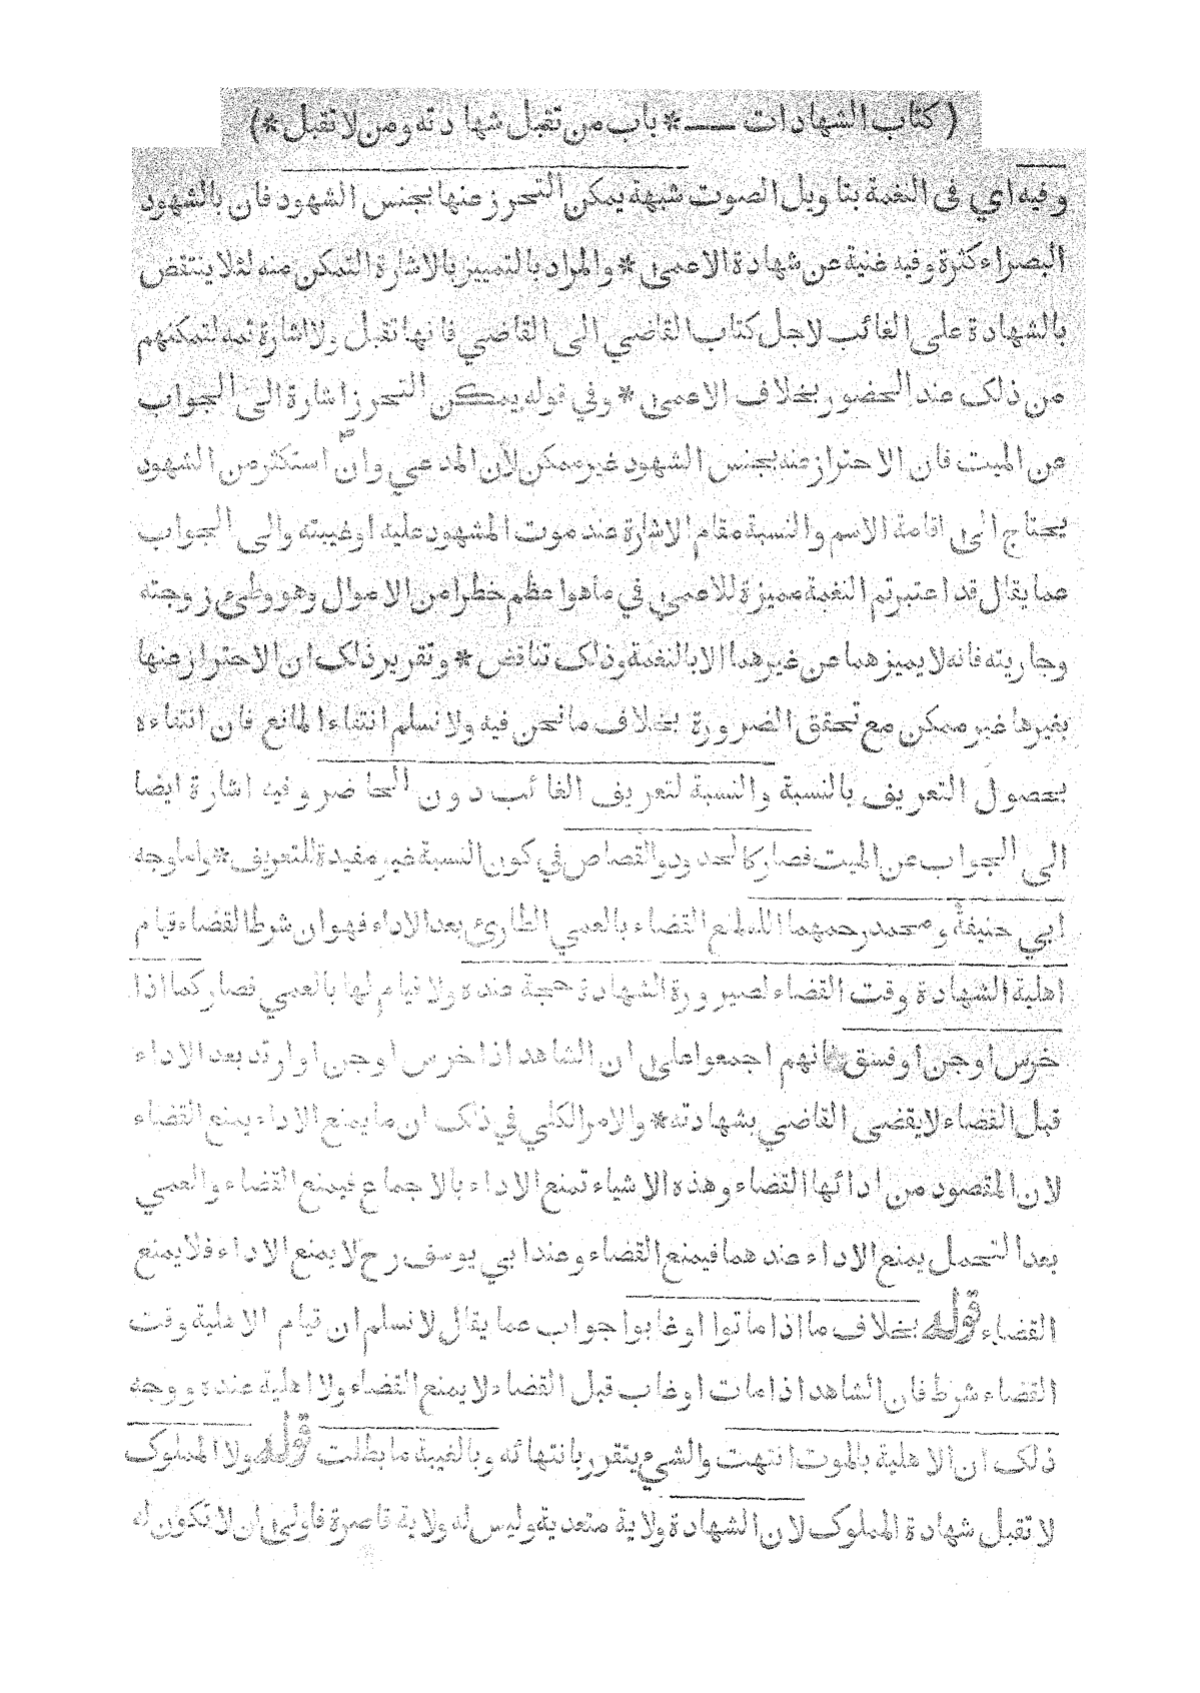 ( كتاب الشهادات ــــ * باب من تقبل شهادته ومن لا تقبل * )
وفيه اي في النغمة بتاويل الصوت شبهة يمكن التحرز عنها بجنس الشهود فان بالشهود
البصراء كثرة وفيه غنية عن شهادة الاعمى * والمراد بالتمييز بالاشارة التمكن منه لئلا ينتقض
بالشهادة على الغائب لاجل كتاب القاضي الى القاضي فانها تقبل ولا اشارة ثمه لتمكنهم
من ذلك عند الحضور بخلاف الاعمى * وفي قوله يمكن التحرز اشارة الى الجواب
عن الميت فان الاحتراز عنه بجنس الشهود غير ممكن لان المدعي وان استكثر من الشهود
يحتاج الى اقامة الاسم والنسبة مقام الاشارة عند موت المشهود عليه او غيبته والى الجواب
عما يقال قد اعتبرتم النغمة مميزة للاعمى في ما هو اعظم خطرا من الاموال وهو وطئ زوجته
وجاريته فانه لا يميزهما عن غيرهما الا بالنغمة وذلك تناقض * وتقرير ذلك ان الاحتراز عنها
بغيرها غير ممكن مع تحقق الضرورة بخلاف ما نحن فيه ولا نسلم انتفاء المانع فان انتفاءه
بحصول التعريف بالنسبة والنسبة لتعريف الغائب دون الحاضر وفيه اشارة ايضا
الى الجواب عن الميت فصار كالحدود والقصاص في كون النسبة غير مفيدة للتعريف * واما وجه
ابي حنيفة ومحمد رحمهما الله لمنع القضاء بالعمي الطارئ بعد الاداء فهو ان شرط القضاء قيام
اهلية الشهادة وقت القضاء لصيرورة الشهادة حجة عنده ولا قيام لها بالعمي فصار كما اذا
خرس او جن او فسق فانهم اجمعوا على ان الشاهد اذا خرس او جن او ارتد بعد الاداء
قبل القضاء لا يقضى القاضي بشهادته * والامر الكلي في ذلك ان ما يمنع الاداء يمنع القضاء
لان المقصود من ادائها القضاء وهذه الاشياء تمنع الاداء بالاجماع فيمنع القضاء والعمي
بعد التحمل يمنع الاداء عندهما فيمنع القضاء وعند ابي يوسف رح لا يمنع الاداء فلا يمنع
القضاء قوله بخلاف ما اذا ماتوا او غابوا جواب عما يقال لا نسلم ان قيام الاهلية وقت
القضاء شرط فان الشاهد اذا مات او غاب قبل القضاء لا يمنع القضاء ولا اهلية عنده ووجه
ذلك ان الاهلية بالموت انتهت والشيء يتقرر بانتهائه وبالغيبة ما بطلت قوله ولا المملوك
لا تقبل شهادة المملوك لان الشهادة ولاية متعدية وليس له ولاية قاصرة فاولى ان لا تكون له